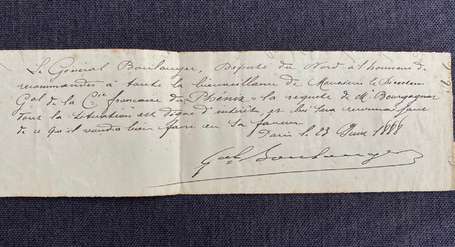 Le Général Boulanger, Député du Nord a l'honneur de
recommander à toute la bienveillance de Monsieur le Directeur
Gal de la Cie française du Phénix la requête de Mr Bourgagnac
dont la situation est digne d'intérêt et lui sera reconnaissant
de ce qu'il voudra bien faire en sa faveur
Paris le 23 Juin 1888
Gal Boulanger